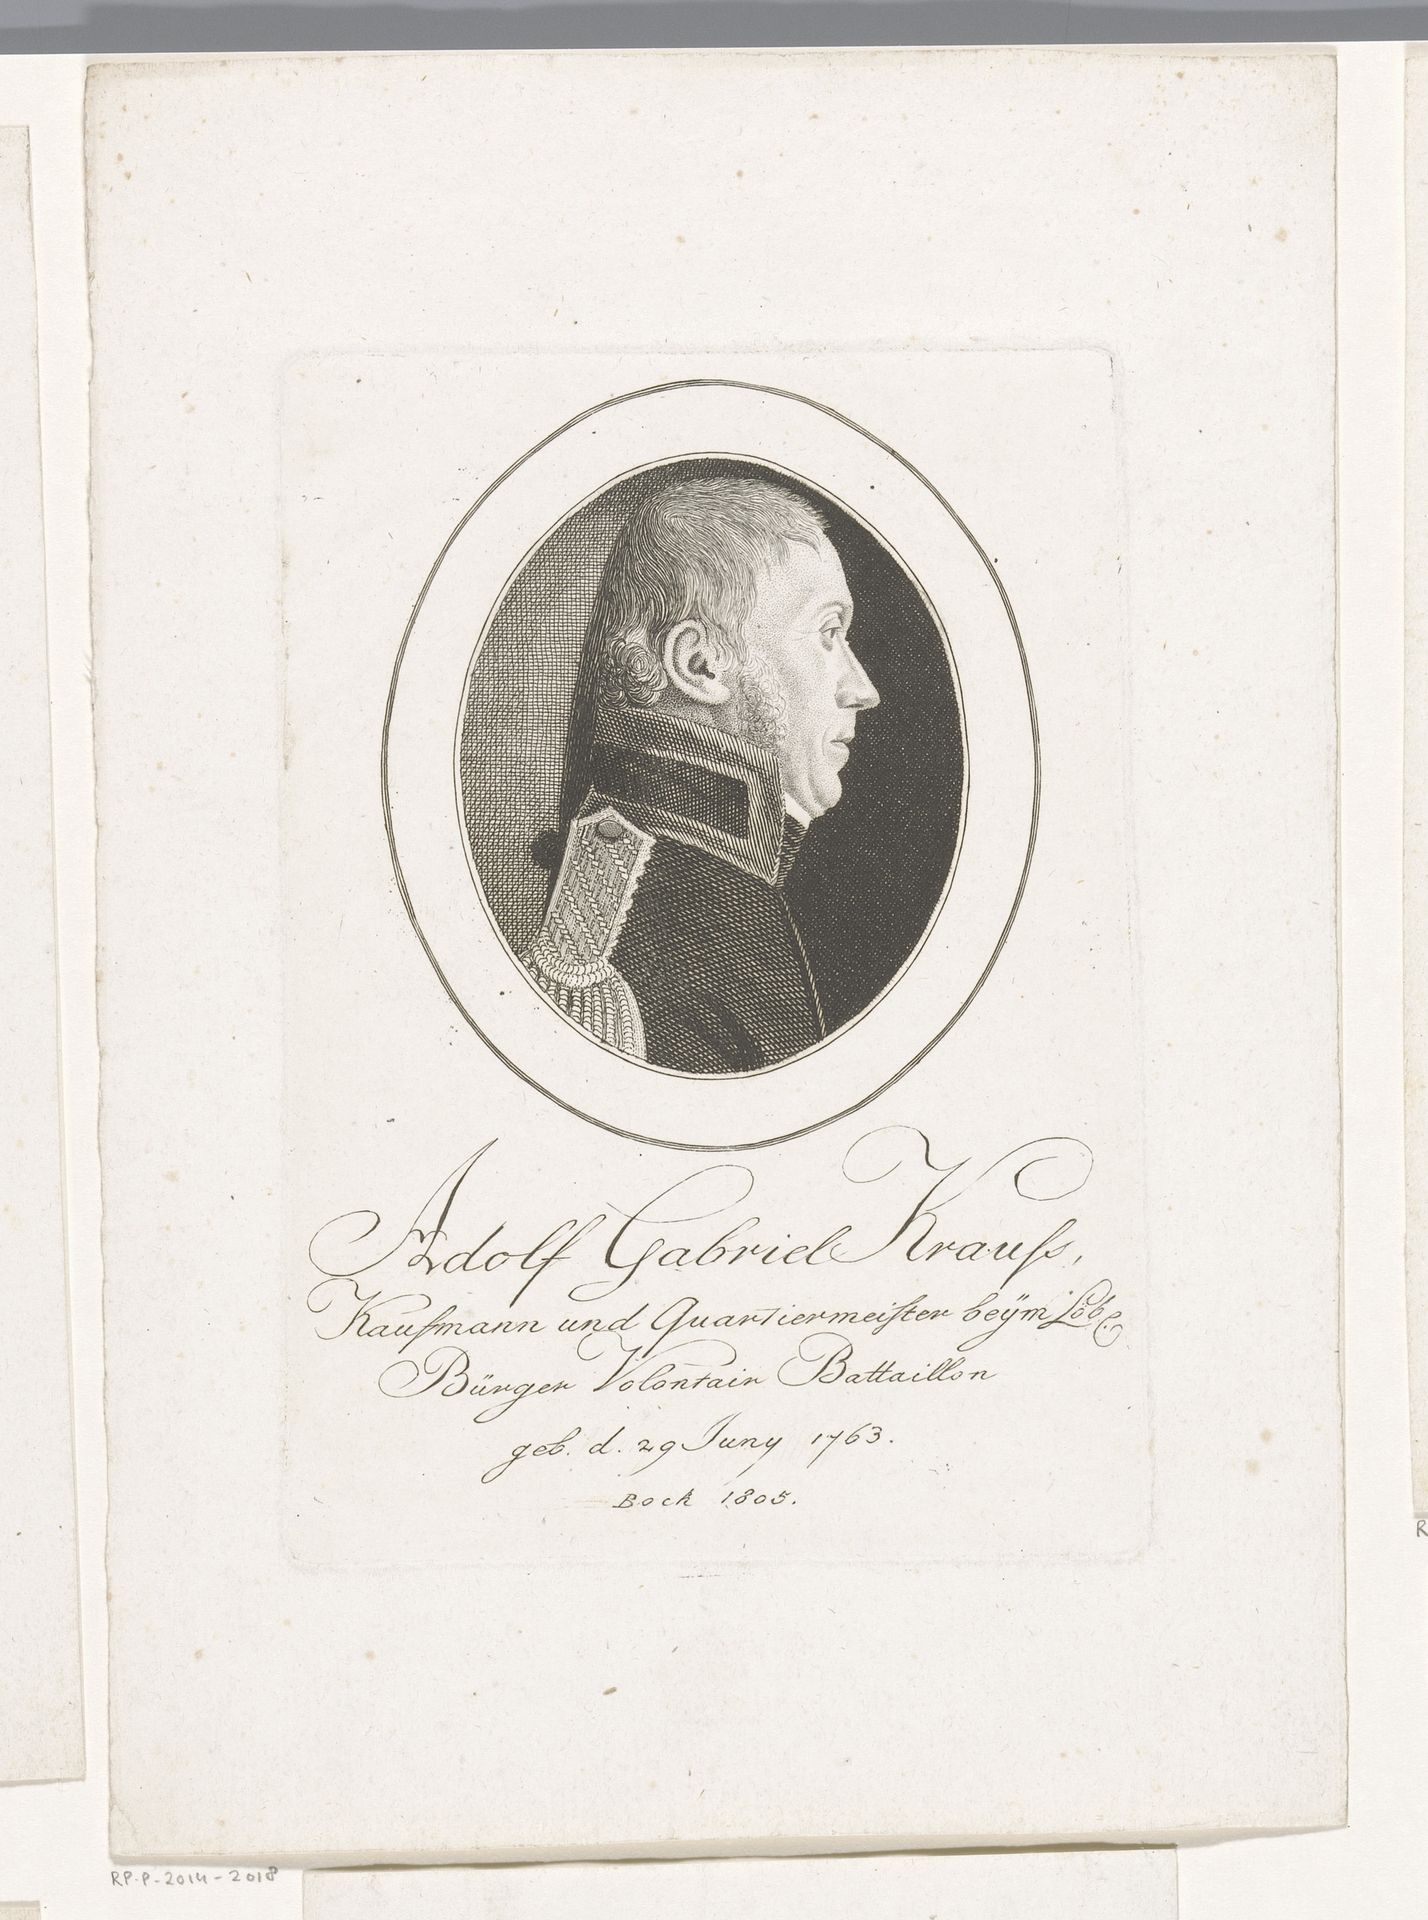 Adolf Gabriel Krauſs,
Kaufmann und Quartiermeiſter beÿm Löbl.
Bürger Volontair Battaillon
geb. d. 29 Juny 1763.
Bock 1805.
RP-P-2014-2018
R